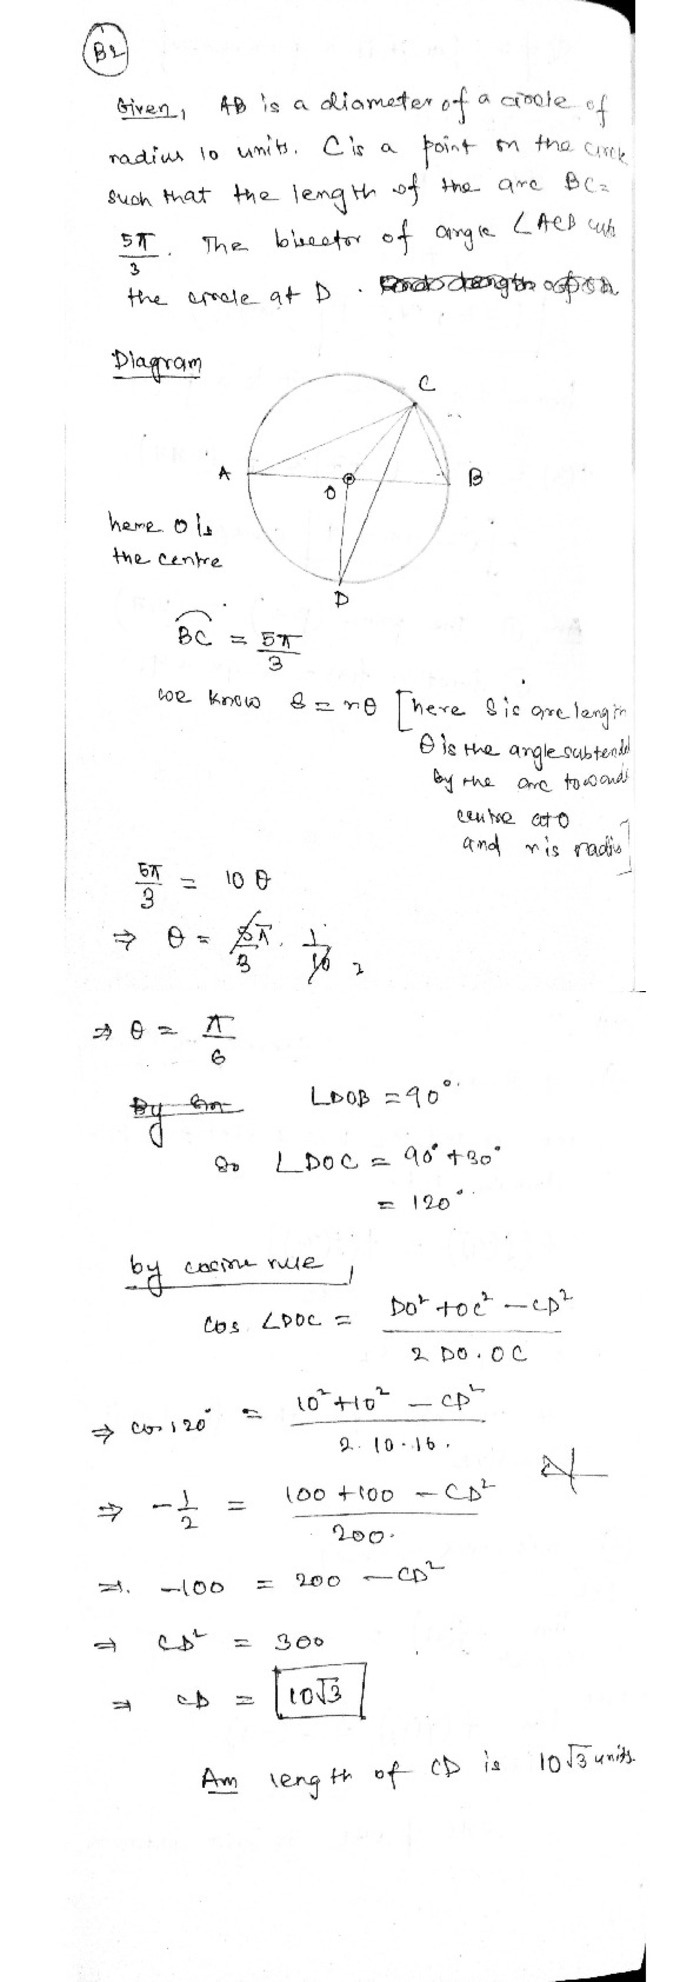 B2
Given, AB is a diameter of a circle of
radius 10 units. C is a point on the circle
such that the length of the arc BC =
5π/3. The bisector of angle ∠ACB cuts
the circle at D.
Diagram
C
A
B
O
here O is
the centre
D
BC = 5π/3
we know s = rθ [here s is arc length
θ is the angle subtended
by the arc towards
centre at O
and r is radius]
5π/3 = 10 θ
⇒ θ = 5π/3 . 1/10 2
⇒ θ = π/6
∠DOB = 90°
So ∠DOC = 90° + 30°
= 120°
by cosine rule,
cos ∠DOC = DO² + OC² - CD² / 2 DO . OC
⇒ cos 120° = 10² + 10² - CD² / 2 . 10 . 10 .
⇒ -1/2 = 100 + 100 - CD² / 200 .
⇒ -100 = 200 - CD²
⇒ CD² = 300
⇒ CD = 10√3
Ans length of CD is 10√3 units.